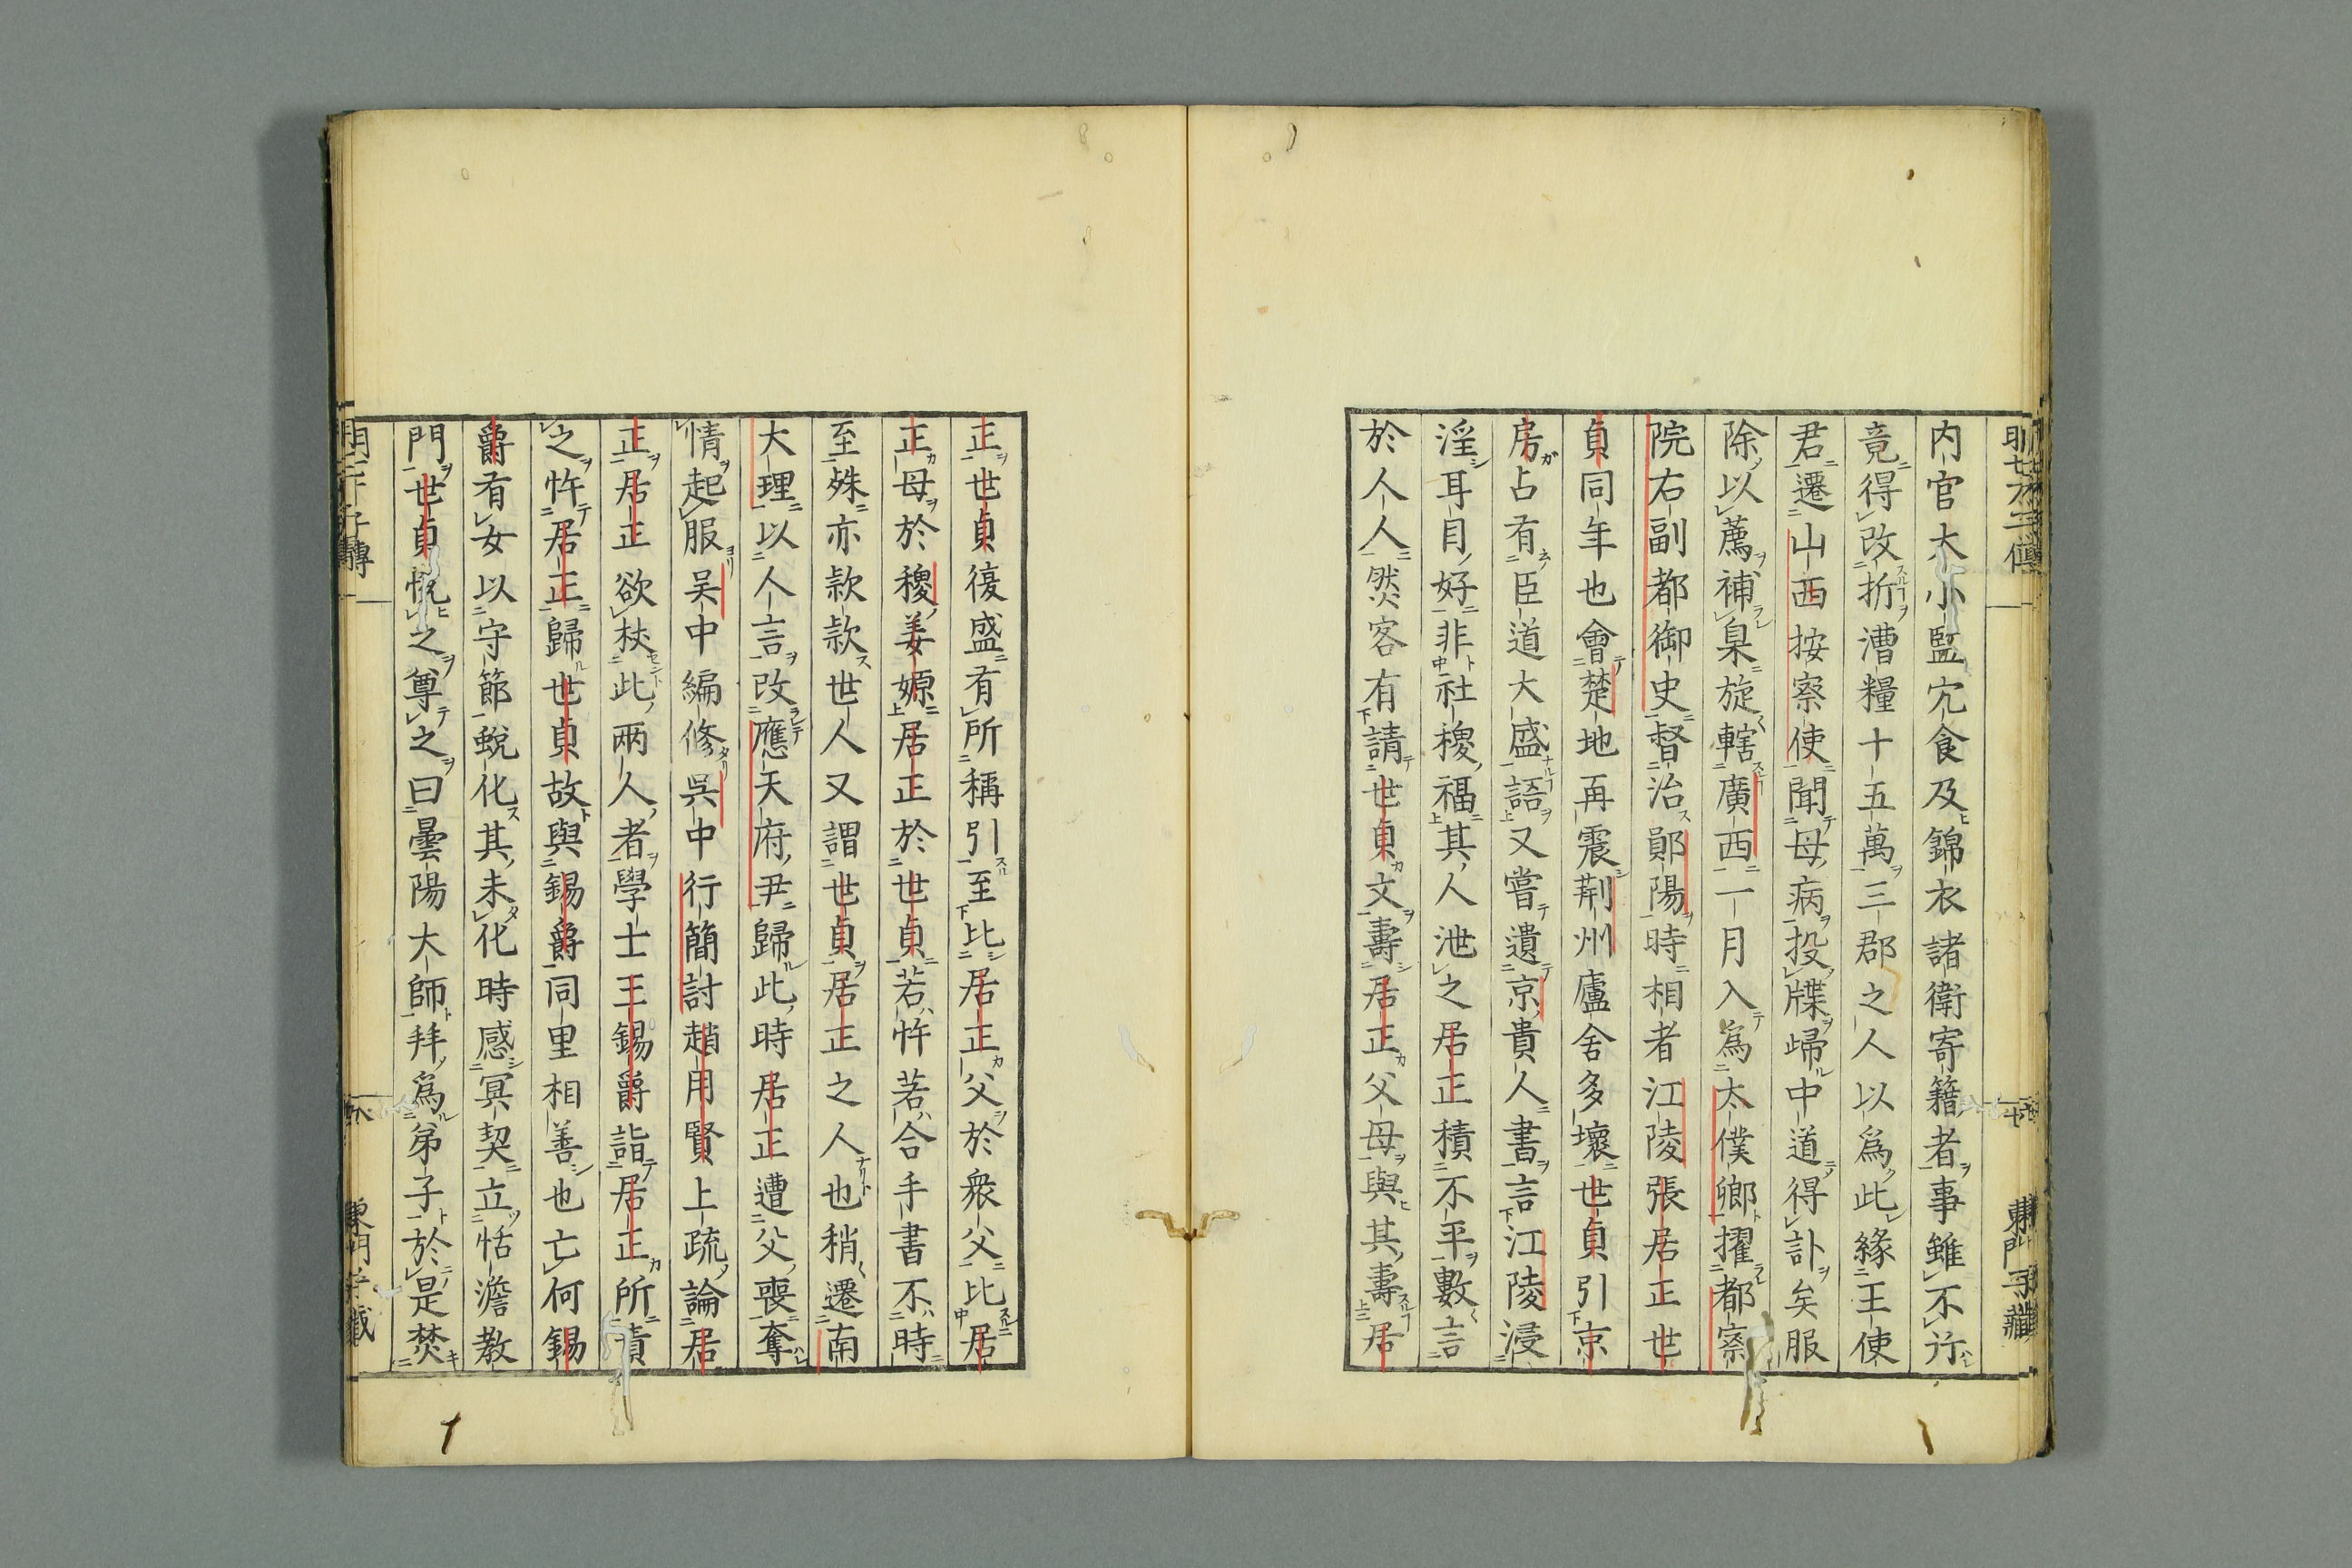 内官太小監宂食及錦衣諸衛寄籍者事雖不行
竟得改折漕糧十五萬三郡之人以爲此緣王使
君遷山西按察使聞母病投牒歸中道得訃矣服
除以薦補臬旋轄廣西一月入爲太僕卿擢都察
院右副都御史督治鄖陽時相者江陵張居正世
貞同年也會楚地再震荆州廬舍多壞世貞引京
房占有臣道大盛語又嘗遺京貴人書言江陵浸
淫耳目好非社稷福其人泄之居正積不平數言
於人人然客有請世貞文壽居正父母與其壽居
正世貞復盛有所稱引至比居正父於衆父比居
正母於稷姜嫄居正於世貞若忤若合手書不時
至殊亦款款世人又謂世貞居正之人也稍遷南
大理以人言改應天府尹歸此時居正遭父喪奪
情起服吴中編修吳中行簡討趙用賢上疏論居
正居正欲杖此兩人者學士王錫爵詣居正所責
之忤居正歸世貞故與錫爵同里相善也亡何錫
爵有女以守節蛻化其未化時感冥契立恬澹教
門世貞悦之尊之曰曇陽大師拜爲弟子於是焚